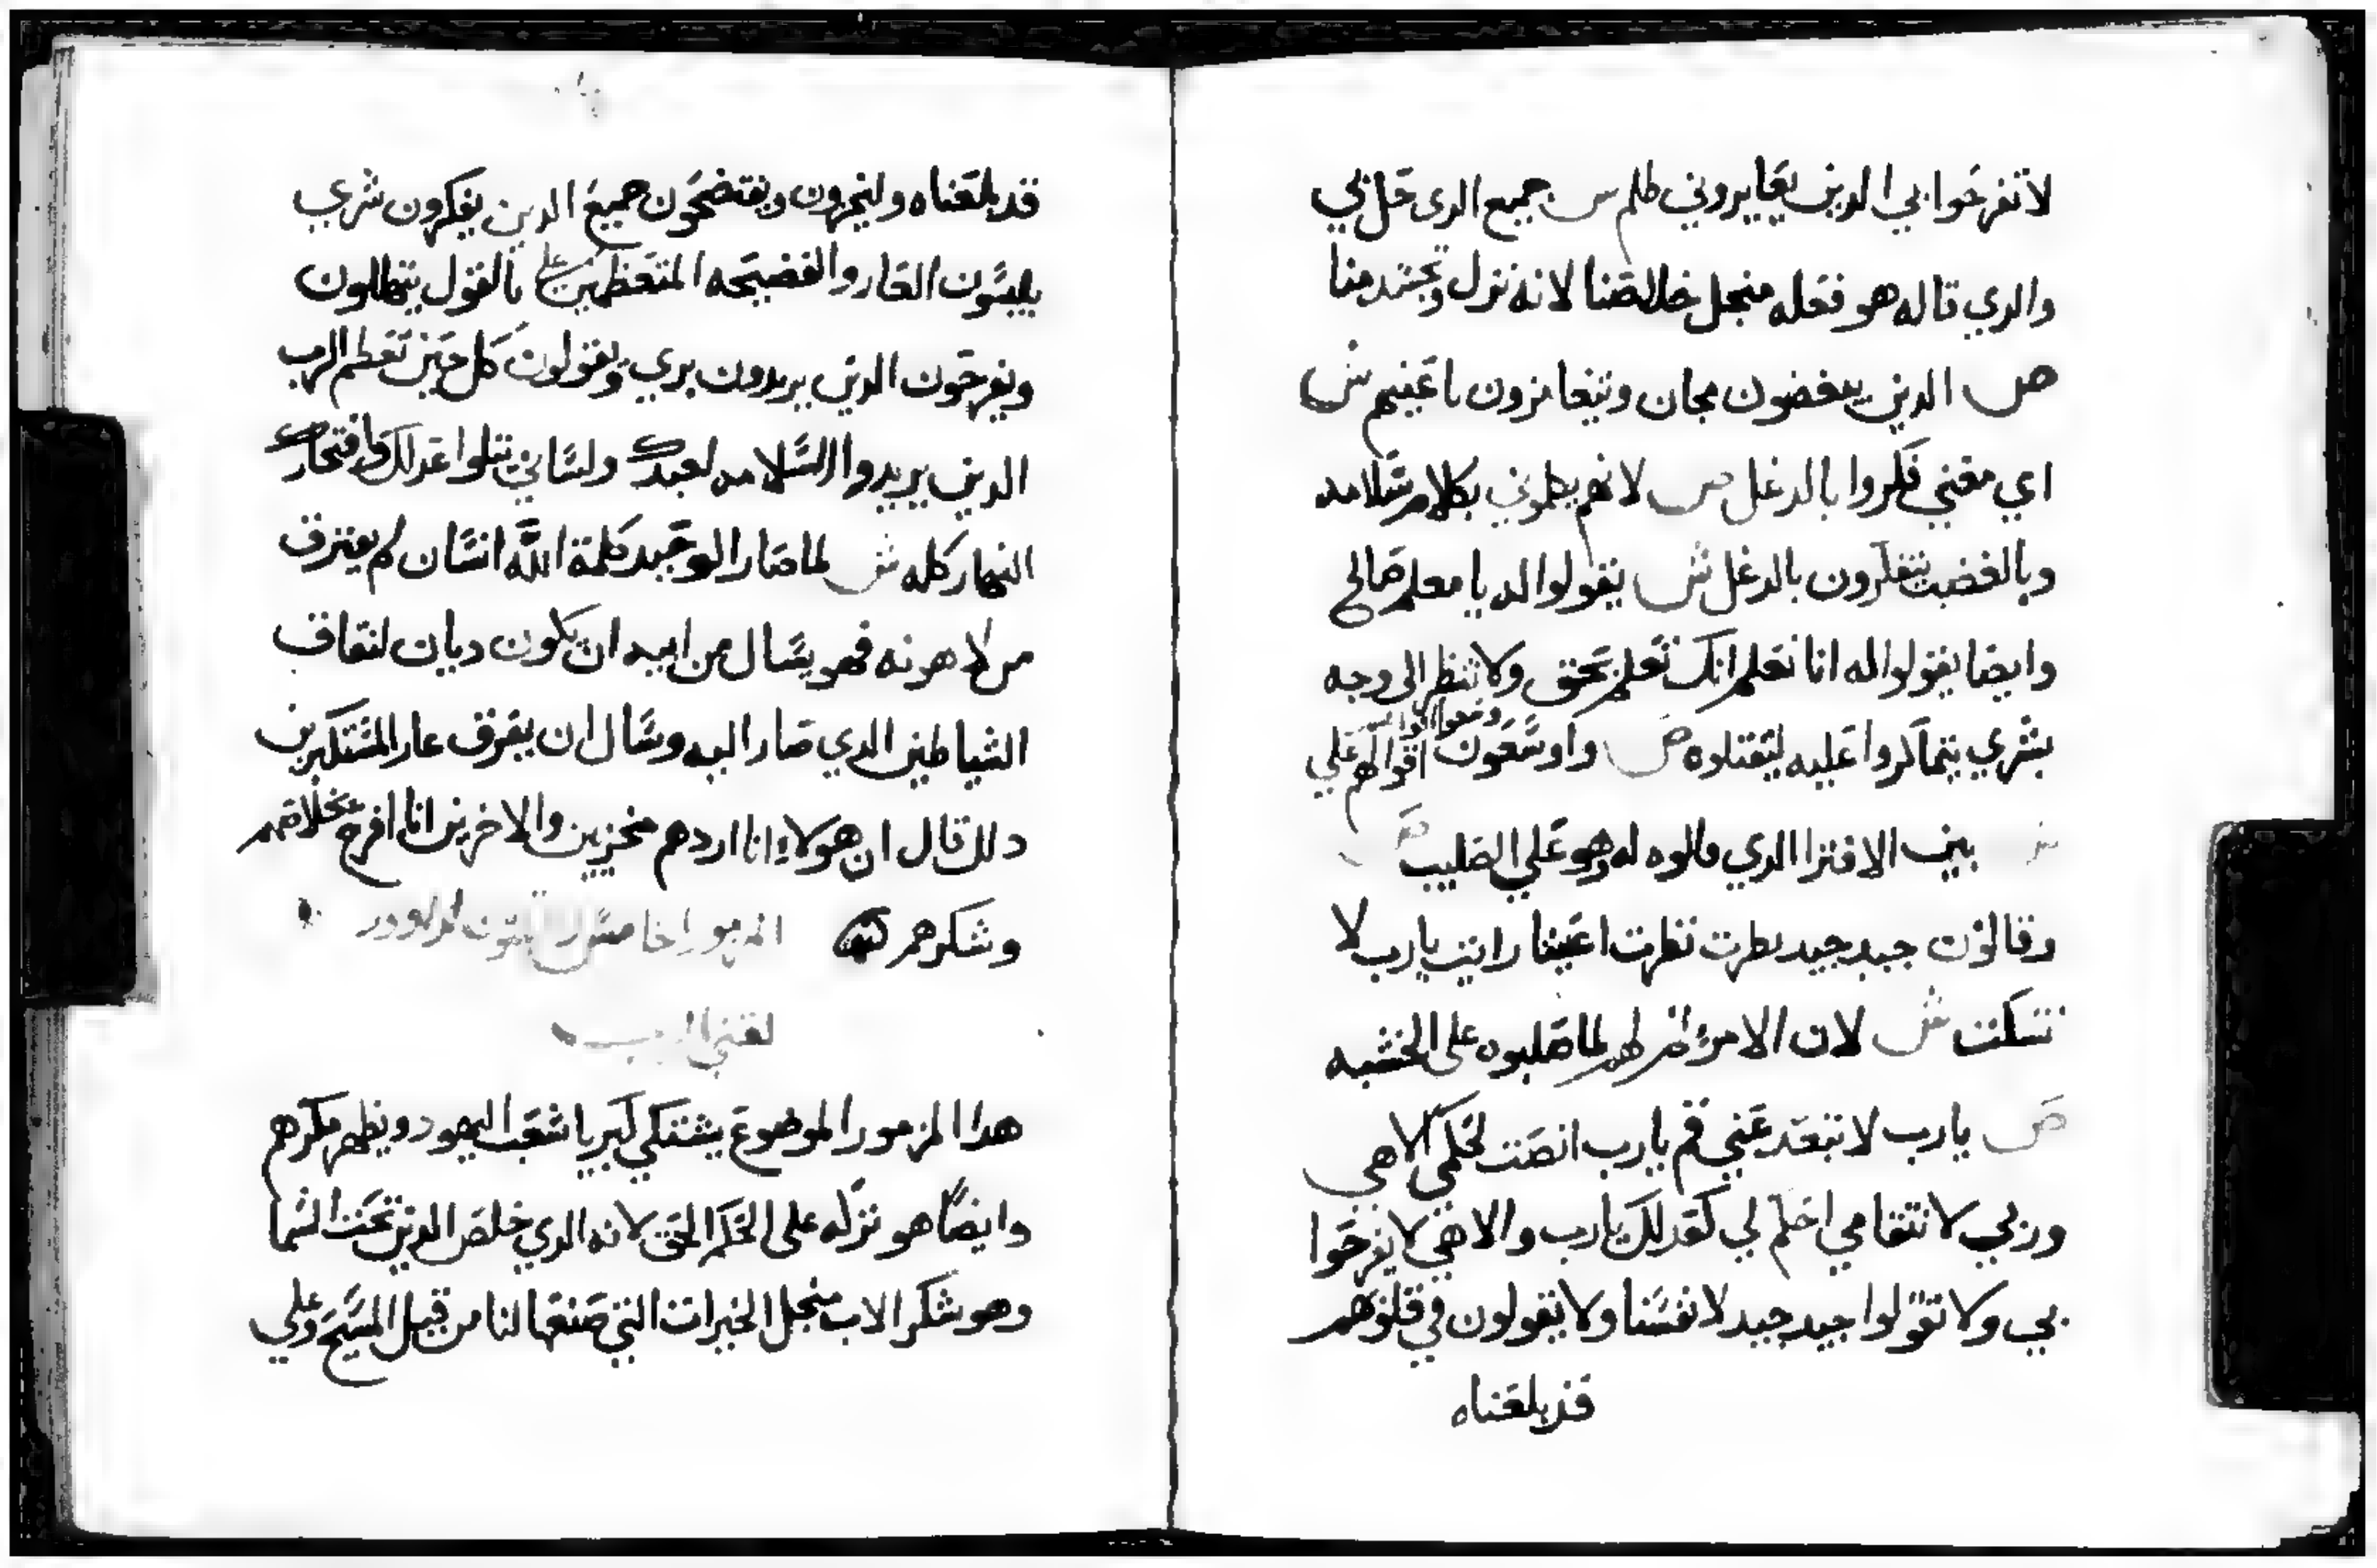 لا تفرحوا بي الدين يعايروني ظلم س جميع الدى حل بي
والدي قاله هو فعله منجل خلاصنا لانه نزل وتجسد منا
ص الدين يبغضون مجان ويتغامزون باعينهم ش
اي معني فكروا بالدغل ص لانهم يكلموني بكلام سلامه
وبالغضب يتفكرون بالدغل ش يقولوا له يا معلم صالح
وايضا يقولوا له انا نعلم انك تعلم بحق ولا تنظر الى وجه
بشري يتماكروا عليه ليقتلوه ص واوسعون اقوالهم علي
ش بين الافترا الدي قالوه له وهو علي الصليب ص
وقالون جيد جيد نظرت نظرت اعيننا رايت يارب لا
تسكت ش لان الامر ظهر لهم لما صلبوه على الخشبه
ص يارب لا تبعد عني قم يارب انصت لحكمي الاهي
وربي لانتقامي احكم لي كعدلك يارب والاهي لا يفرحوا
بي ولا تقولوا جيد جيد لانفسنا ولا يقولون في قلوبهم
قد بلعناه
قد بلعناه وليخزون ويفتضحون جميع الدين يفكرون شري
يلبسون العار والفضيحه المتعظمين علي بالقول يتهللون
ويفرحون الدين يريدون بري ويقولون كل حين تعظم الرب
الدين يريدوا السلامه لعبدك ولساني يتلوا عدلك وافتخارك
النهار كله ش لما صار الوحيد كلمة الله انسان لم يفترق
من لاهوته فهو يسال من ابيه ان يكون ديان لنفاق
الشياطين الدي صار اليه وسال ان يفرق عار المستكبرين
دلك قال ان هولاء انا اردهم مخزيين والاخرين انا افرح بخلاصهم
وشكرهم المزمور الخامس
هدا المزمور الموضوع يشتكي كبريا شعب اليهود ويظهر مكرهم
وايضا هو نزله على الحكم الحق لانه الدي خلص الدين تحت السما
وهو شكر الاب منجل الخيرات التي صنعها لنا من قبل المسيح وعلي